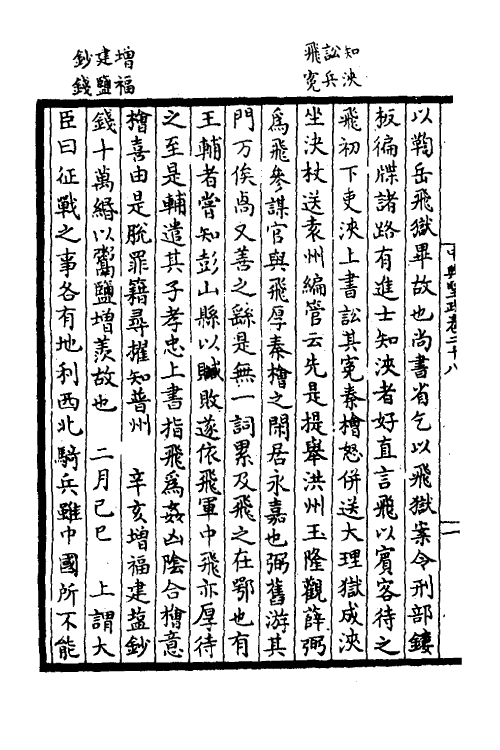 知浹
訟兵
飛寃
增福
建鹽
鈔錢
中興聖政卷二十八
一
以鞫岳飛獄畢故也尚書省乞以飛獄案令刑部鏤
板徧牒諸路有進士知浹者好直言飛以賓客待之
飛初下吏浹上書訟其寃秦檜怒併送大理獄成浹
坐決杖送袁州編管云先是提舉洪州玉隆觀薛弼
爲飛參謀官與飛厚秦檜之閑居永嘉也弼舊游其
門万俟卨又善之繇是無一詞累及飛之在鄂也有
王輔者嘗知彭山縣以贓敗遂依飛軍中飛亦厚待
之至是輔遣其子孝忠上書指飛爲姦凶陰合檜意
檜喜由是脫罪籍尋擢知普州　辛亥增福建盐鈔
錢十萬緡以鬻鹽增羨故也　二月己巳　上謂大
臣曰征戰之事各有地利西北騎兵雖中國所不能